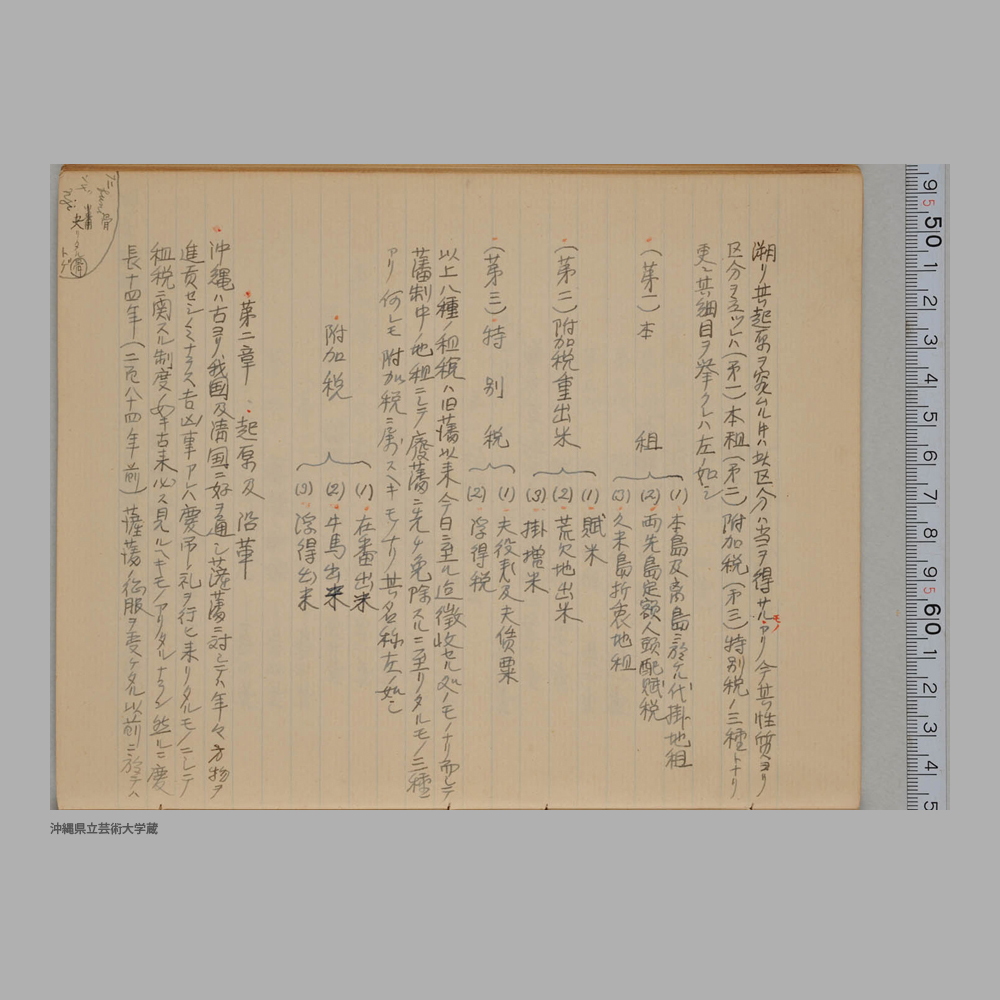 溯リ其起原ヲ究ムル片ハ此区分ハ当ヲ得サルモノアリ今其性質ヨリ
区分ヲ立ツレハ(第一)本租(第二)附加税(第三)特別税ノ三種トナリ
更ニ其細目ヲ挙クレハ左ノ如シ
(第一)本租
(1)本島及离島ニ於ケル代掛地租
(2)両先島定額人頭配賦税
(3)久米島折衷地租
(第二)附加税重出米
(1)賦米
(2)荒欠地出米
(3)掛増米
(第三)特別税
(1)夫役銭及夫賃粟
(2)浮得税
以上八種ノ租税ハ旧藩以来今日ニ至ル迄徴收セル処ノモノナリ而シテ
藩制中ノ地租ニシテ廢藩ニ先チ免除スルニ至リタルモノ三種
アリ何レモ附加税ニ属スヘキモノナリ其名称左ノ如シ
附加税
(1)在番出米
(2)牛馬出米
(3)浮得出米
第二章 起原及沿革
沖縄ハ古ヨリ我国及清国ニ好ヲ通シ薩藩ニ対シテハ年々方物ヲ
進貢セシノミナラス吉凶事アレハ慶弔ノ礼ヲ行ヒ来リタルモノニシテ
租税ニ関スル制度ノ如キ古来必ス見ルヘキモノアリタルナラン然ルニ慶
長十四年(二百八十四年前)薩藩ノ征服ヲ受ケタル以前ニ於テハ
沖縄県立芸術大学蔵